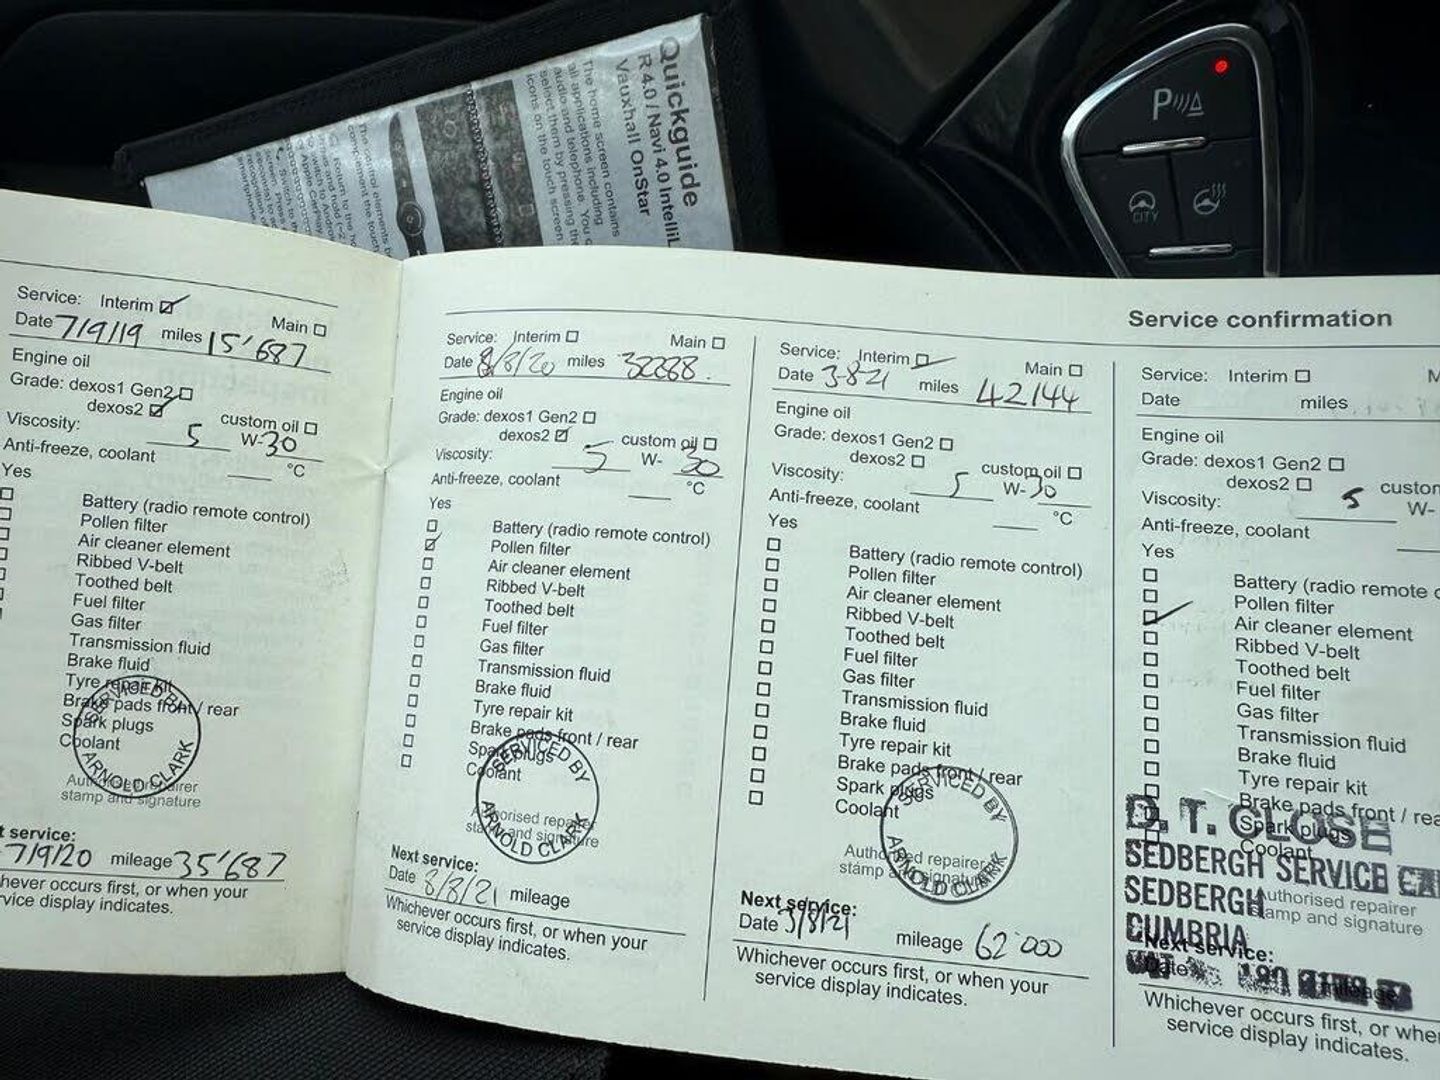 Quickguide
R 4.0 / Navi 4.0 IntelliL
Vauxhall OnStar
The home screen contains
all applications including
audio and telephone. You c
select them by pressing the
icons on the touch screen
P
CITY
Service: Interim Main
Date 7/9/19 miles 15'687
Engine oil
Grade: dexos1 Gen2
dexos2 custom oil
Viscosity: 5 W-30
Anti-freeze, coolant °C
Yes
Battery (radio remote control)
Pollen filter
Air cleaner element
Ribbed V-belt
Toothed belt
Fuel filter
Gas filter
Transmission fluid
Brake fluid
Tyre repair kit
Brake pads front / rear
Spark plugs
Coolant
SERVICED BY
ARNOLD CLARK
Authorised repairer
stamp and signature
t service:
7/9/20 mileage 35'687
hever occurs first, or when your
rvice display indicates.
Service: Interim Main
Date 8/8/20 miles 32288.
Engine oil
Grade: dexos1 Gen2
dexos2 custom oil
Viscosity: 5 W- 30
Anti-freeze, coolant °C
Yes
Battery (radio remote control)
Pollen filter
Air cleaner element
Ribbed V-belt
Toothed belt
Fuel filter
Gas filter
Transmission fluid
Brake fluid
Tyre repair kit
Brake pads front / rear
Spark plugs
Coolant
SERVICED BY
ARNOLD CLARK
Authorised repairer
stamp and signature
Next service:
Date 8/8/21 mileage
Whichever occurs first, or when your
service display indicates.
Service confirmation
Service: Interim Main
Date 3-8-21 miles 42144
Engine oil
Grade: dexos1 Gen2
dexos2 custom oil
Viscosity: 5 W-30
Anti-freeze, coolant °C
Yes
Battery (radio remote control)
Pollen filter
Air cleaner element
Ribbed V-belt
Toothed belt
Fuel filter
Gas filter
Transmission fluid
Brake fluid
Tyre repair kit
Brake pads front / rear
Spark plugs
Coolant
SERVICED BY
ARNOLD CLARK
Authorised repairer
stamp and signature
Next service:
Date 3/8/21 mileage 62'000
Whichever occurs first, or when your
service display indicates.
Service: Interim M
Date miles
Engine oil
Grade: dexos1 Gen2
dexos2 custom
Viscosity: 5 W-
Anti-freeze, coolant
Yes
Battery (radio remote c
Pollen filter
Air cleaner element
Ribbed V-belt
Toothed belt
Fuel filter
Gas filter
Transmission fluid
Brake fluid
Tyre repair kit
Brake pads front / rea
Spark plugs
Coolant
D. T. CLOSE
SEDBERGH SERVICE
SEDBERGH
CUMBRIA
Authorised repairer
stamp and signature
Next service:
Date mileage
Whichever occurs first, or whe
service display indicates.